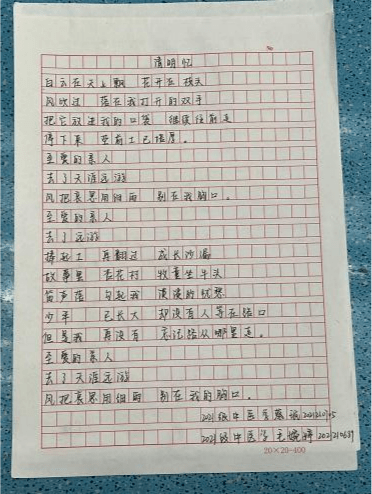 No
清明忆
白云在天上飘 花开在枝头
风吹过 落在我打开的双手
把它放进我的口袋 继续往前走
停下来 坐前土已结厚。
至爱的亲人
去了天涯远游
风把哀思用细雨 别在我胸口。
至爱的亲人
去了远游
捧起土 再翻过 成长沙漏
故事里 杏花村 牧童坐牛头
笛声落 勾起我 淡淡的忧愁
少年 已长大 却没有人等在路口
但是我 再没有 忘记路从哪里走。
至爱的亲人
去了天涯远游
风把哀思用细雨 别在我的胸口。
2021级中医学
2021级中医学
20×20=400